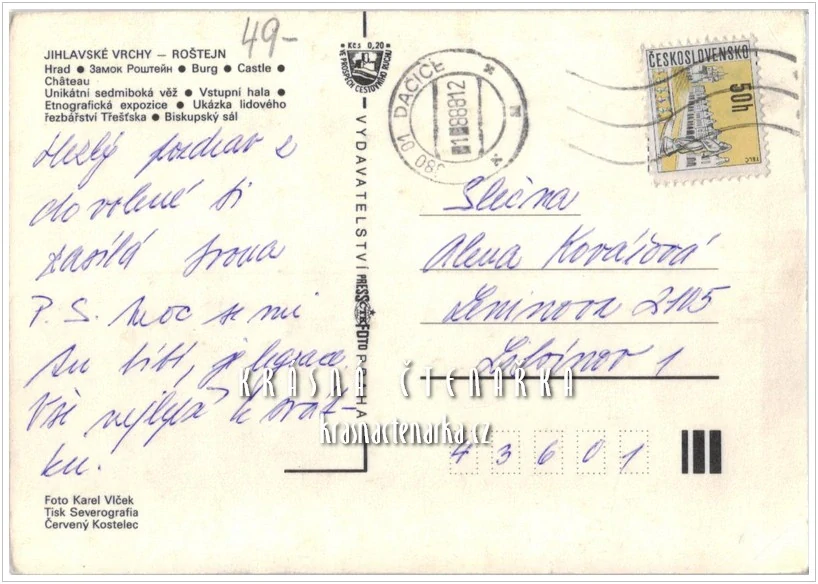 49-
JIHLAVSKÉ VRCHY — ROŠTEJN
Hrad ● Замок Роштейн ● Burg ● Castle ●
Château
Unikátní sedmiboká věž ● Vstupní hala ●
Etnografická expozice ● Ukázka lidového
řezbářství Třešťska ● Biskupský sál
Hezký pozdrav z
dovolené ti
zasílá Ivona
P.S. Moc se mi
tu líbí, je legrace
Vše nejlepší k svát-
ku.
Foto Karel Vlček
Tisk Severografia
Červený Kostelec
Kčs 0,20
VE PROSPĚCH CESTOVNÍHO RUCHU
VYDAVATELSTVÍ PRESSFOTO PRAHA
380 01 DAČICE
ČESKOSLOVENSKO
50h
TELČ
Slečna
Alena Kovářová
Leninova 2105
Litvínov 1
43601
KRÁSNÁ ČTENÁŘKA
krasnactenarka.cz